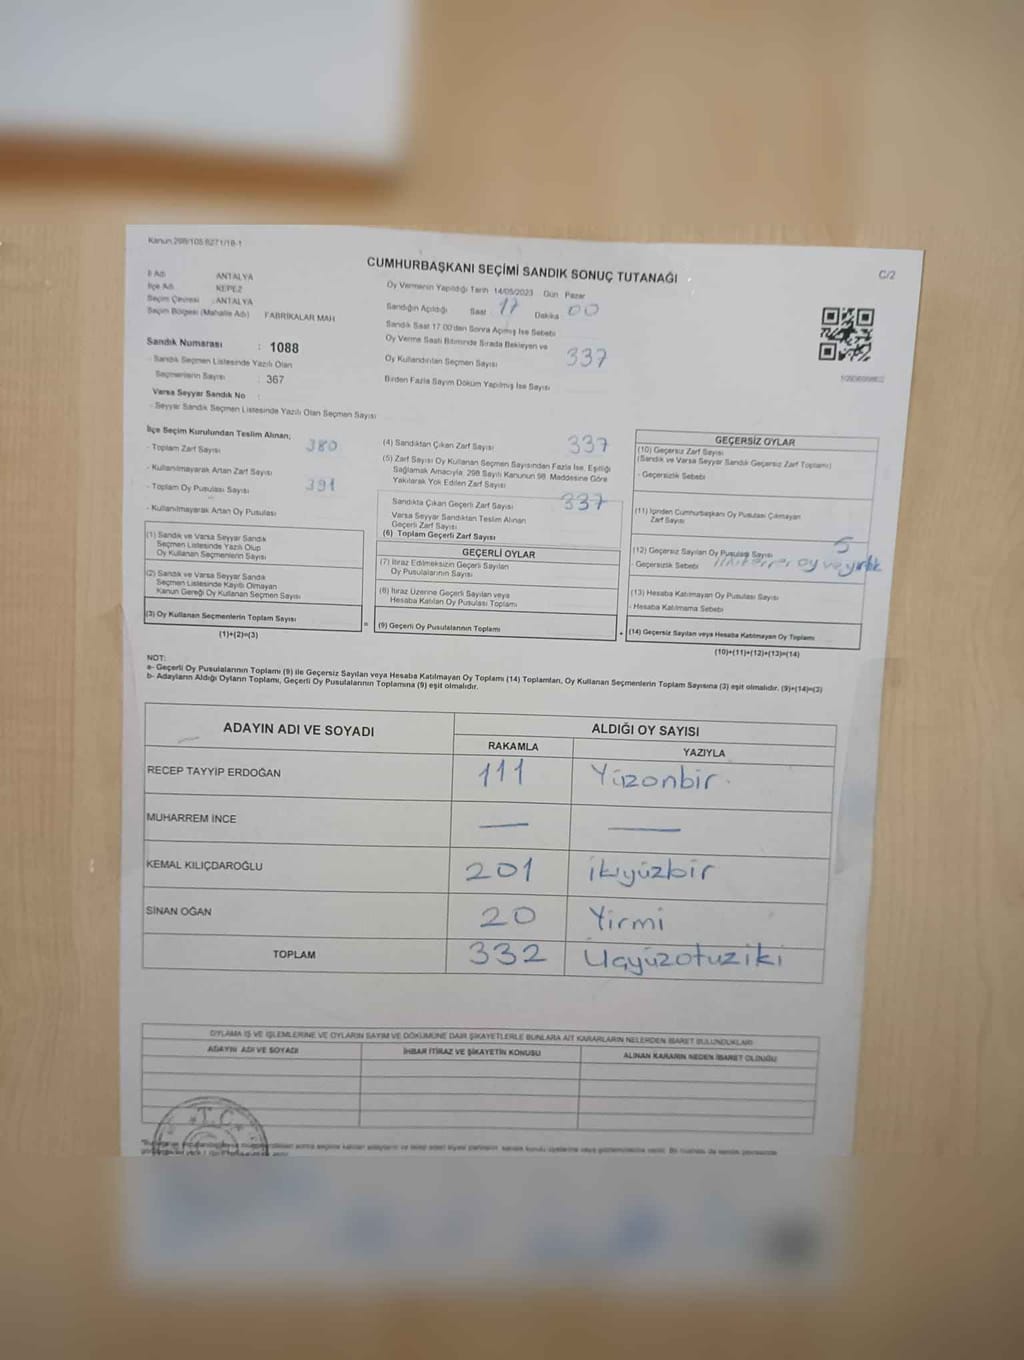 Kanun 298/105 6271/18-1
CUMHURBAŞKANI SEÇİMİ SANDIK SONUÇ TUTANAĞI
C/2
İl Adı ANTALYA
İlçe Adı KEPEZ
Seçim Çevresi : ANTALYA
Seçim Bölgesi (Mahalle Adı) FABRİKALAR MAH
Sandık Numarası : 1088
- Sandık Seçmen Listesinde Yazılı Olan
Seçmenlerin Sayısı : 367
Varsa Seyyar Sandık No :
- Seyyar Sandık Seçmen Listesinde Yazılı Olan Seçmen Sayısı
Oy Vermenin Yapıldığı Tarih 14/05/2023 Gün Pazar
Sandığın Açıldığı Saat 17 Dakika 00
Sandık Saat 17.00'den Sonra Açılmış İse Sebebi
Oy Verme Saati Bitiminde Sırada Bekleyen ve
Oy Kullandırılan Seçmen Sayısı 337
Birden Fazla Sayım Döküm Yapılmış İse Sayısı
İlçe Seçim Kurulundan Teslim Alınan;
- Toplam Zarf Sayısı 380
- Kullanılmayarak Artan Zarf Sayısı
- Toplam Oy Pusulası Sayısı 391
- Kullanılmayarak Artan Oy Pusulası
(1) Sandık ve Varsa Seyyar Sandık
Seçmen Listesinde Yazılı Olup
Oy Kullanan Seçmenlerin Sayısı
(2) Sandık ve Varsa Seyyar Sandık
Seçmen Listesinde Kayıtlı Olmayan
Kanun Gereği Oy Kullanan Seçmen Sayısı
(3) Oy Kullanan Seçmenlerin Toplam Sayısı
(1)+(2)=(3)
=
(4) Sandıktan Çıkan Zarf Sayısı 337
(5) Zarf Sayısı Oy Kullanan Seçmen Sayısından Fazla İse, Eşitliği
Sağlamak Amacıyla, 298 Sayılı Kanunun 98. Maddesine Göre
Yakılarak Yok Edilen Zarf Sayısı
Sandıkta Çıkan Geçerli Zarf Sayısı 337
Varsa Seyyar Sandıktan Teslim Alınan
Geçerli Zarf Sayısı
(6) Toplam Geçerli Zarf Sayısı
GEÇERLİ OYLAR
(7) İtiraz Edilmeksizin Geçerli Sayılan
Oy Pusulalarının Sayısı
(8) İtiraz Üzerine Geçerli Sayılan veya
Hesaba Katılan Oy Pusulası Toplamı
(9) Geçerli Oy Pusulalarının Toplamı
+
GEÇERSİZ OYLAR
(10) Geçersiz Zarf Sayısı
(Sandık ve Varsa Seyyar Sandık Geçersiz Zarf Toplamı)
- Geçersizlik Sebebi
(11) İçinden Cumhurbaşkanı Oy Pusulası Çıkmayan
Zarf Sayısı
(12) Geçersiz Sayılan Oy Pusulası Sayısı 5
- Geçersizlik Sebebi oy ve yırtık
(13) Hesaba Katılmayan Oy Pusulası Sayısı
- Hesaba Katılmama Sebebi
(14) Geçersiz Sayılan veya Hesaba Katılmayan Oy Toplamı
(10)+(11)+(12)+(13)=(14)
NOT:
a- Geçerli Oy Pusulalarının Toplamı (9) ile Geçersiz Sayılan veya Hesaba Katılmayan Oy Toplamı (14) Toplamları, Oy Kullanan Seçmenlerin Toplam Sayısına (3) eşit olmalıdır. (9)+(14)=(3)
b- Adayların Aldığı Oyların Toplamı, Geçerli Oy Pusulalarının Toplamına (9) eşit olmalıdır.
ADAYIN ADI VE SOYADI
ALDIĞI OY SAYISI
RAKAMLA YAZIYLA
RECEP TAYYİP ERDOĞAN 111 Yüzonbir
MUHARREM İNCE — —
KEMAL KILIÇDAROĞLU 201 ikiyüzbir
SİNAN OĞAN 20 Yirmi
TOPLAM 332 Üçyüzotuziki
OYLAMA İŞ VE İŞLEMLERİNE VE OYLARIN SAYIM VE DÖKÜMÜNE DAİR ŞİKAYETLERLE BUNLARA AİT KARARLARIN NELERDEN İBARET BULUNDUKLARI
ADAYIN ADI VE SOYADI İHBAR İTİRAZ VE ŞİKAYETİN KONUSU ALINAN KARARIN NEDEN İBARET OLDUĞU
T.C.